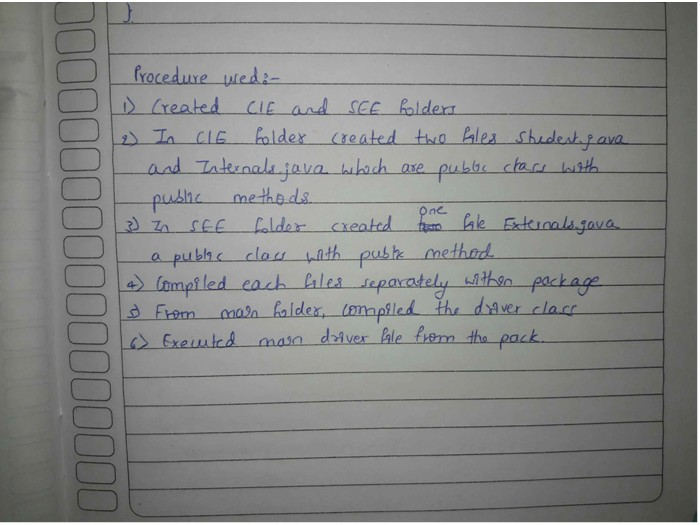 }
Procedure used:-
1) Created CIE and SEE folders
2) In CIE folder created two files Student.java
and Internals.java which are public class with
public methods.
3) In SEE folder created one file Externals.java
a public class with public method
4) Compiled each files separately within package
5) From main folder, compiled the driver class
6) Executed main driver file from the pack.